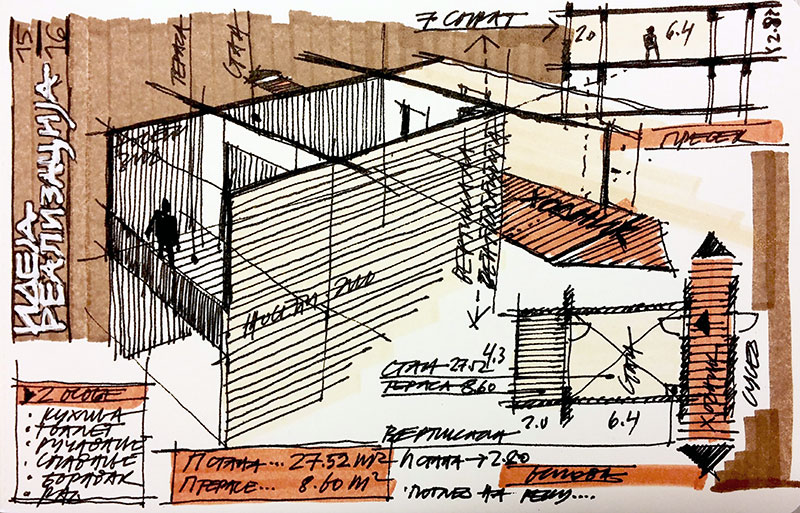 ИДЕЈА 15
РЕАЛИЗАЦИЈА 16
ТЕРАСА
СТАН
7 СПРАТ
2.0 6.4
ПРЕСЕК
НОСЕЋИ
ЗИД
ВЕРТИКАЛНА
ХОДНИК
НОСЕЋИ ЗИД
СТАН 27.52
ТЕРАСА 8.60
4.3
СТАН
ХОДНИК
СУСЕД
2.0 6.4
2 ОСОБЕ
: КУХИЊА
: ТОАЛЕТ
: РУЧАВАЊЕ
: СПАВАЊЕ
: БОРАВАК
: РАД
П СТАНА... 27.52 m²
П ТЕРАСЕ... 8.60 m²
ВЕРТИКАЛА
H СТАНА → 2.80
ПОГЛЕД НА РЕКУ....
ОСНОВЕ